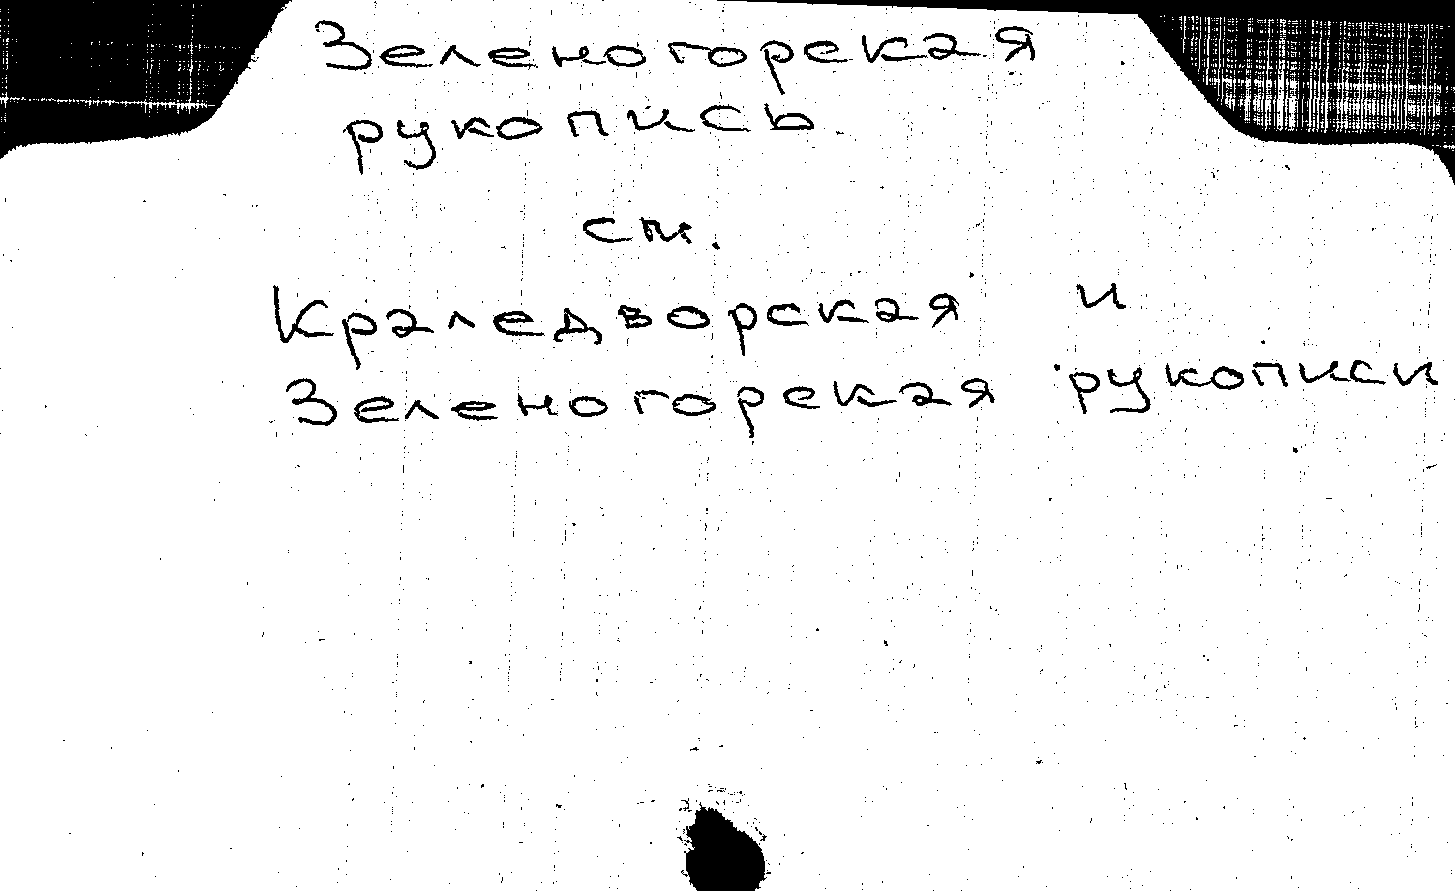 Зеленогорская
рукопись
см.
Краледворская и
Зеленогорская рукописи